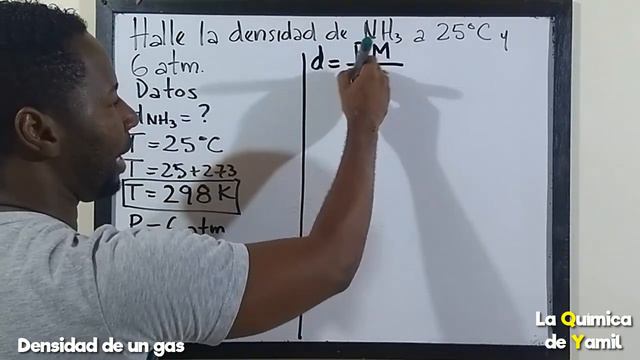 Halle la densidad de NH₃ a 25°C y
6 atm.
Datos
dNH₃ = ?
T = 25°C
T = 25 + 273
T = 298 K
P = 6 atm
d = PM
Densidad de un gas
La Química
de Yamil